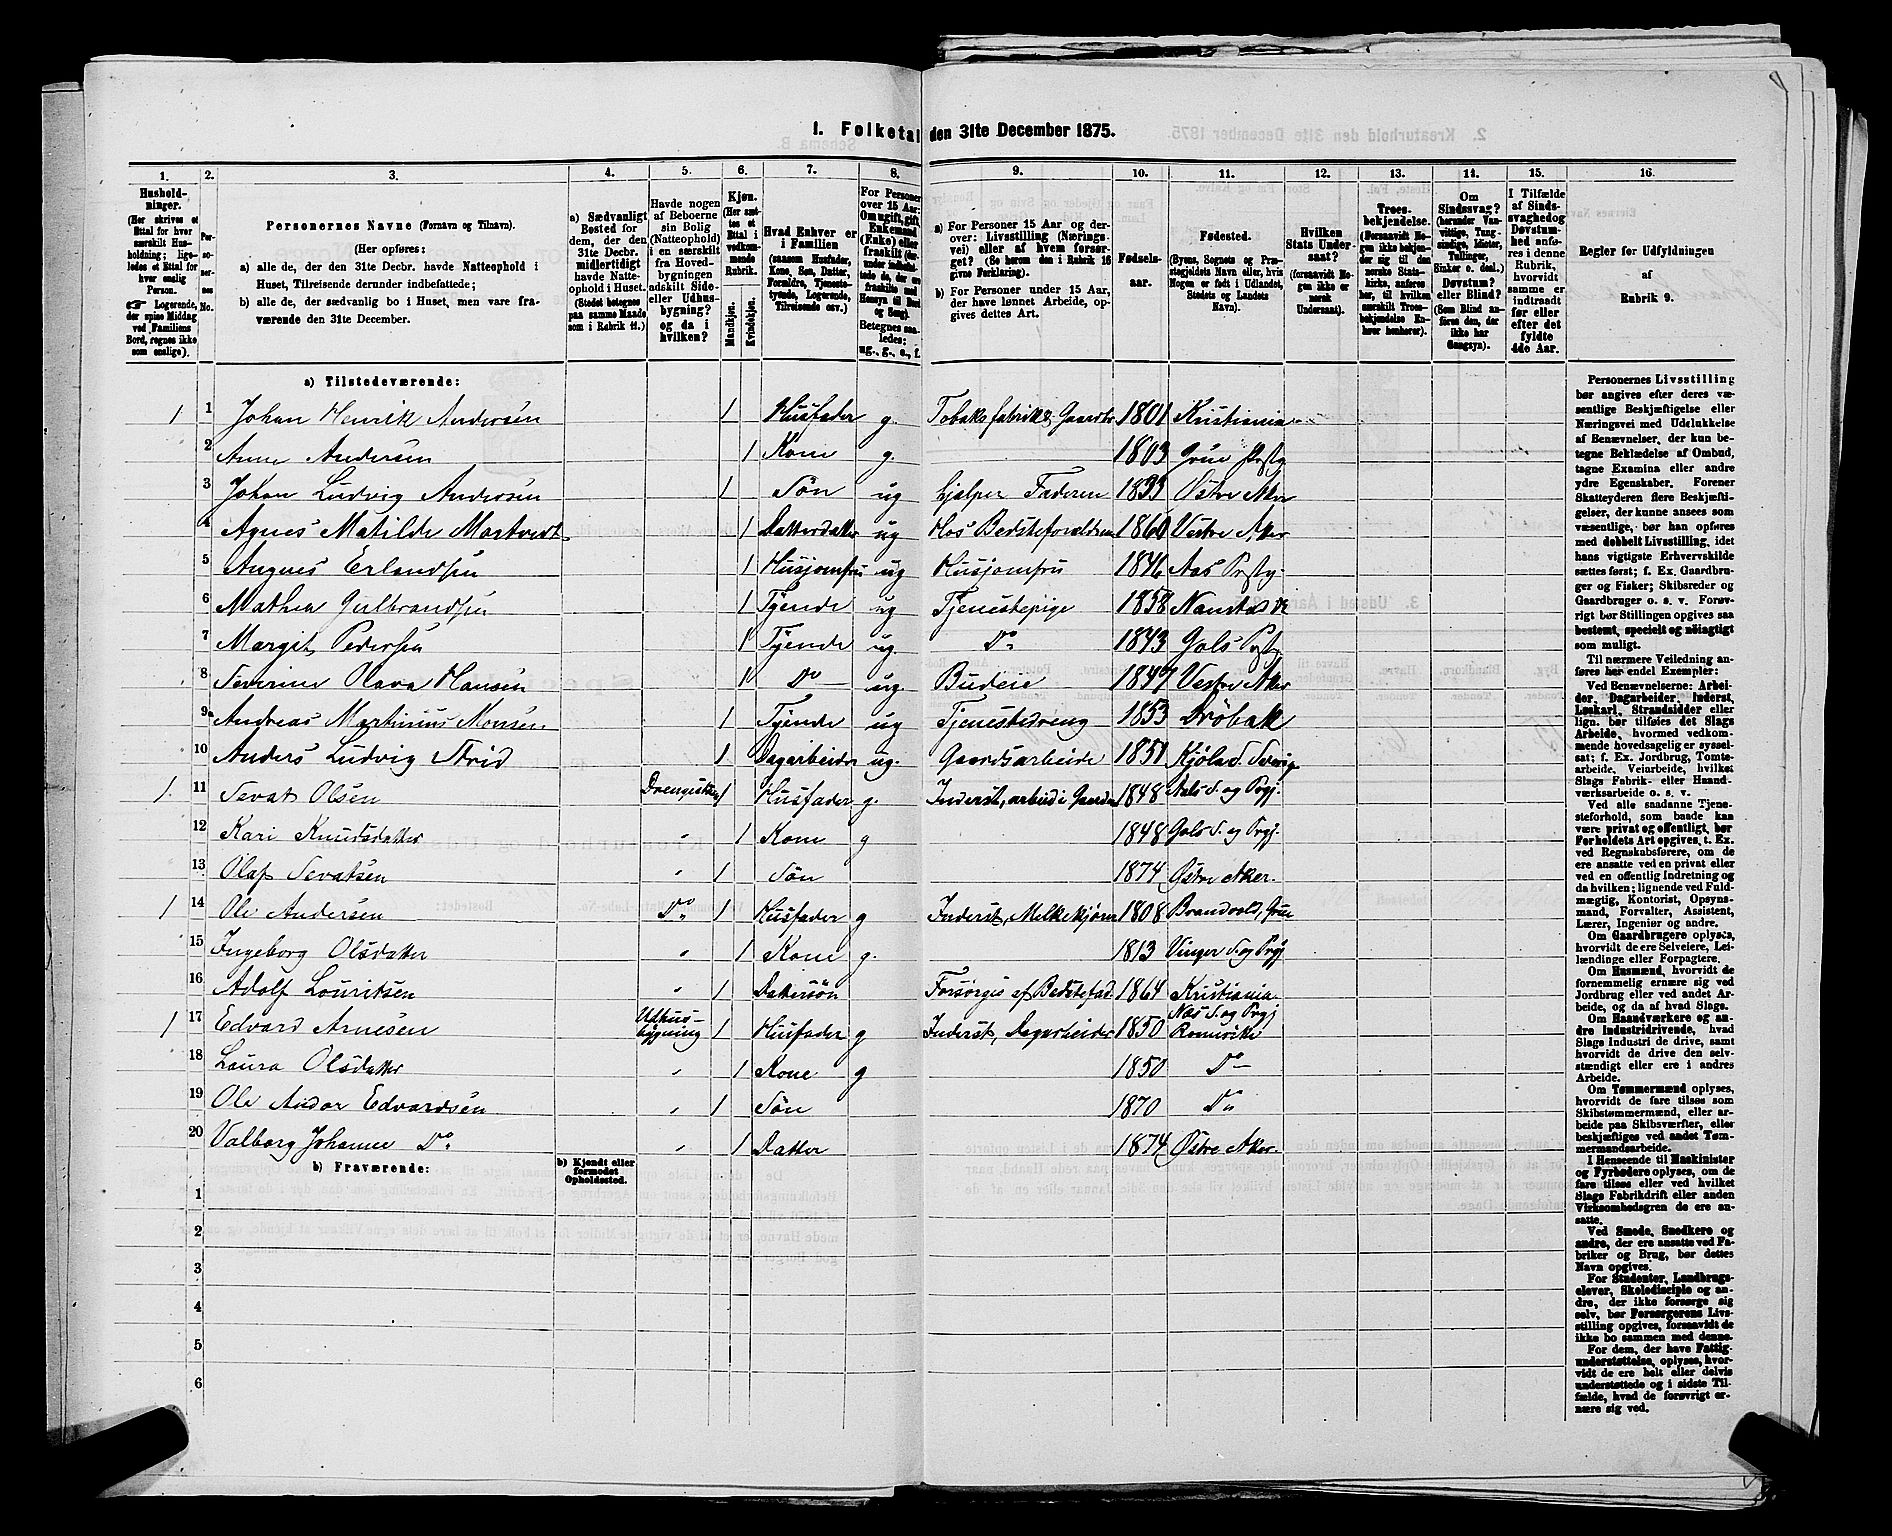 1. Folketal den 31te December 1875.
1. 2. 3. 4. 5. 6. 7. 8. 9. 10. 11. 12. 13. 14. 15. 16.
Husholdninger. (Her skrives et Ettal for hver særskilt Husholdning; ligeledes et Ettal for hver enslig Person. Logerende, der spise Middag ved Familiens Bord, regnes ikke som enslige).
Personernes No.
Personernes Navne (Fornavn og Tilnavn).
(Her opføres:
a) alle de, der den 31te Decbr. havde Natteophold i Huset, Tilreisende derunder indbefattede;
b) alle de, der sædvanlig bo i Huset, men vare fraværende den 31te December.
a) Sædvanligt Bosted for dem, der den 31te Decbr. midlertidigt havde Natteophold i Huset. (Stedet betegnes paa samme Maade som i Rubrik 11.)
Havde nogen af Beboerne sin Bolig (Natteophold) i en særskilt fra Hovedbygningen adskilt Side- eller Udhusbygning? og da i hvilken?
Kjøn. (Her sættes et Ettal i vedkommende Rubrik. Mandkjøn. Kvindekjøn.
Hvad Enhver er i Familien (saasom Husfader, Kone, Søn, Datter, Forældre, Tjenestetyende, Logerende, Tilreisende osv.)
For Personer over 15 Aar: Om ugift, gift, Enkemand (Enke) eller fraskilt Betegnes saaledes: ug., g., e., f.
a) For Personer 15 Aar og derover: Livsstilling (Næringsvei) eller af hvem forsørget? (Se herom den i Rubrik 16 givne Forklaring).
b) For Personer under 15 Aar, der have lønnet Arbeide, opgives dettes Art.
Fødselsaar.
Fødested. (Byens, Sognets og Præstegjeldets Navn eller, hvis Nogen er født i Udlandet, Stedets og Landets Navn).
Hvilken Stats Undersaat? (foreaavidt Nogen ikke er norsk Undersaat).
Troesbekjendelse. (Foreaavidt Nogen ikke bekjender sig til den norske Statskirke, anføres her, til hvilken særskilt Troesbekjendelse Enhver henhører).
Om Sindssvag? (herunder Vanvittige, Tungsindige, Idioter, Tullinger, Sinker o. desl.) Døvstum? eller Blind? (Som Blind anføres den, der ikke har Gangsyn).
I Tilfælde af Sindssvaghed og Døvstumhed anføres i denne Rubrik, hvorvidt samme er indtraadt før eller efter det fyldte 4de Aar.
Regler før Udfyldningen af Rubrik 9.
a) Tilstedeværende:
1 1 Johan Henrik Andersen 1 Husfader g. Tobaksfabrik & Gaardbr 1801 Kristiania
2 Anne Andersen 1 Kone g. 1803 Grue Prstg
3 Johan Ludvig Andersen 1 Søn ug hjelper Faderen 1833 Østre Aker
4 Agnes Matilde Martvedt 1 Datterdatter ug Hos Bedsteforældrene 1860 Vestre Aker
5 Augnes Erlandsen 1 Husjomfru ug Husjomfru 1846 Aas Prstg
6 Mathea Gulbrandsen 1 Tjende ug Tjenestepige 1858 Nanstad
7 Margit Pedersen 1 Tjende ug. Do 1843 Gols Prstg
8 Severine Olava Hansen 1 Do ug. Budeie 1847 Vestre Aker
9 Andreas Martinius Monsen 1 Tjende ug Tjenestedreng 1853 Drøbak
10 Anders Ludvig Strid 1 Dagarbeider ug. Gaardsarbeide 1851 Kjøla S. Sverig
1. 11 Sevat Olsen Drengestuen 1 Husfader g. Inderst, arbeid i Gaarden 1848 Aals S. og Prgj.
12 Kari Knudsdatter " 1 Kone g 1848 Gols S. og Prgj.
13 Olaf Sevatsen " 1 Søn 1874 Østre Aker.
1 14 Ole Andersen Do 1 Husfader g Inderst, Melkekjører 1808 Brandvold, Grue
15 Ingeborg Olsdatter " 1 Kone g. 1813 Vinger S. og Prgj
16 Adolf Louritsen " 1 Dattersøn Forsørges af Bedstefad. 1864 Kristiania
1 17 Edvard Arnesen Udhusbygning 1 Husfader g Inderst, Dagarbeider 1850 Næs S. og Prgj Romerike
18 Laura Olsdatter " 1 Kone g 1850 Do
19 Ole Andor Edvardsen " 1 Søn 1870 Do
20 Valborg Johanne Do " 1 Datter 1874 Østre Aker.
b) Fraværende:
b) Kjendt eller formodet Opholdssted.
1
2
3
4
5
6
Personernes Livsstilling
bør angives efter deres væ-
sentlige Beskjæftigelse eller
Næringsvei med Udelukkelse
af Benævnelser, der kun be-
tegne Beklædelse af Ombud,
tagne Examina eller andre
ydre Egenskaber. Forener
Skatteyderen flere Beskjæfti-
gelser, der kunne ansees som
væsentlige, bør han opføres
med dobbelt Livsstilling, idet
hans vigtigste Erhvervskilde
sættes først; f. Ex. Gaardbru-
ger og Fisker; Skibsreder og
Gaardbruger o. s. v. Forøv-
rigt bør Stillingen opgives saa
bestemt, specielt og nøiagtigt
som muligt.
Til nærmere Veiledning an-
føres her endel Exempler:
Ved Benævnelserne: Arbei-
der, Dagarbeider, Inderst,
Løskarl, Strandsidder eller
lign. bør tilføies det Slags
Arbeide, hvormed vedkom-
mende hovedsagelig er syssel-
sat; f. Ex. Jordbrug, Tomte-
arbeide, Veiarbeide, hvilket
Slags Fabrik- eller Haand-
værksarbeide o. s. v.
Ved alle saadanne Tjene-
steforhold, som baade kan
være privat og offentligt, bør
Forholdets Art opgives, t. Ex.
ved Regnskabsførere, om de
ere ansatte ved en privat eller
ved en offentlig Indretning og
da hvilken; lignende ved Fuld-
mægtig, Kontorist, Opsyns-
mand, Forvalter, Assistent,
Lærer, Ingeniør og andre.
Om Gaardbrugere oplyses,
hvorvidt de ere Selveiere, Lei-
lændinge eller Forpagtere.
Om Husmænd, hvorvidt de
fornemmelig ernære sig ved
Jordbrug eller ved andet Ar-
beide, og da af hvad Slags.
Om Haandværkere og an-
dre Industridrivende, hvad
Slags Industri de drive, samt
hvorvidt de drive den selv-
stændigt eller ere i andres
Arbeide.
Om Tømmermænd oplyses,
hvorvidt de fare tilsøs som
Skibstømmermænd, eller ar-
beide paa Skibsværfter, eller
beskjæftiges ved andet Tøm-
mermandsarbeide.
I Henseende til Maskinister
og Fyrbødere oplyses, om de
fare tilsøs eller ved hvilket
Slags Fabrikdrift eller anden
Virksomhedsgren de ere an-
satte.
Ved Smede, Snedkere og
andre, der ere ansatte ved Fa-
briker og Brug, bør dettes
Navn opgives.
For Studenter, Landbrugs-
elever, Skoledisciple og an-
dre, der ikke forsørge sig
selv, bør Forsørgerens Livs-
stilling opgives, forsaavidt de
ikke bo sammen med denne.
For dem, der have Fattig-
understøttelse, oplyses, hvor-
vidt de ere helt eller delvis
understøttede og i sidste Til-
fælde, hvad de forøvrigt er-
nære sig ved.